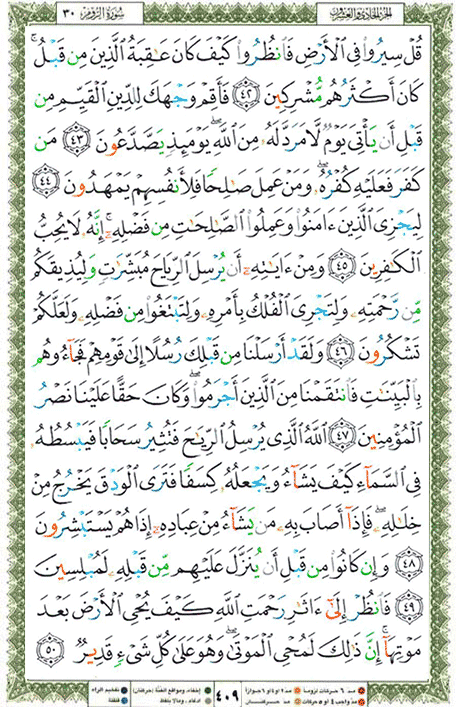 سُورَةُ الرُّومِ ٣٠
الجزء الحادي والعشرون
قُلۡ سِيرُواْ فِي ٱلۡأَرۡضِ فَٱنظُرُواْ كَيۡفَ كَانَ عَٰقِبَةُ ٱلَّذِينَ مِن قَبۡلُۚ
كَانَ أَكۡثَرُهُم مُّشۡرِكِينَ ٤٢ فَأَقِمۡ وَجۡهَكَ لِلدِّينِ ٱلۡقَيِّمِ مِن
قَبۡلِ أَن يَأۡتِيَ يَوۡمٞ لَّا مَرَدَّ لَهُۥ مِنَ ٱللَّهِۖ يَوۡمَئِذٖ يَصَّدَّعُونَ ٤٣ مَن
كَفَرَ فَعَلَيۡهِ كُفۡرُهُۥۖ وَمَنۡ عَمِلَ صَٰلِحٗا فَلِأَنفُسِهِمۡ يَمۡهَدُونَ ٤٤
لِيَجۡزِيَ ٱلَّذِينَ ءَامَنُواْ وَعَمِلُواْ ٱلصَّٰلِحَٰتِ مِن فَضۡلِهِۦٓۚ إِنَّهُۥ لَا يُحِبُّ
ٱلۡكَٰفِرِينَ ٤٥ وَمِنۡ ءَايَٰتِهِۦٓ أَن يُرۡسِلَ ٱلرِّيَاحَ مُبَشِّرَٰتٖ وَلِيُذِيقَكُم
مِّن رَّحۡمَتِهِۦ وَلِتَجۡرِيَ ٱلۡفُلۡكُ بِأَمۡرِهِۦ وَلِتَبۡتَغُواْ مِن فَضۡلِهِۦ وَلَعَلَّكُمۡ
تَشۡكُرُونَ ٤٦ وَلَقَدۡ أَرۡسَلۡنَا مِن قَبۡلِكَ رُسُلًا إِلَىٰ قَوۡمِهِمۡ فَجَآءُوهُم
بِٱلۡبَيِّنَٰتِ فَٱنتَقَمۡنَا مِنَ ٱلَّذِينَ أَجۡرَمُواْۖ وَكَانَ حَقًّا عَلَيۡنَا نَصۡرُ
ٱلۡمُؤۡمِنِينَ ٤٧ ٱللَّهُ ٱلَّذِي يُرۡسِلُ ٱلرِّيَٰحَ فَتُثِيرُ سَحَابٗا فَيَبۡسُطُهُۥ
فِي ٱلسَّمَآءِ كَيۡفَ يَشَآءُ وَيَجۡعَلُهُۥ كِسَفٗا فَتَرَى ٱلۡوَدۡقَ يَخۡرُجُ مِنۡ
خِلَٰلِهِۦۖ فَإِذَآ أَصَابَ بِهِۦ مَن يَشَآءُ مِنۡ عِبَادِهِۦٓ إِذَا هُمۡ يَسۡتَبۡشِرُونَ
٤٨ وَإِن كَانُواْ مِن قَبۡلِ أَن يُنَزَّلَ عَلَيۡهِم مِّن قَبۡلِهِۦ لَمُبۡلِسِينَ
٤٩ فَٱنظُرۡ إِلَىٰٓ ءَاثَٰرِ رَحۡمَتِ ٱللَّهِ كَيۡفَ يُحۡيِ ٱلۡأَرۡضَ بَعۡدَ
مَوۡتِهَآۚ إِنَّ ذَٰلِكَ لَمُحۡيِ ٱلۡمَوۡتَىٰۖ وَهُوَ عَلَىٰ كُلِّ شَيۡءٖ قَدِيرٞ ٥٠
مد ٦ حركات لزوماً مد ٢ او ٤ او ٦ جوازاً
مد واجب ٤ او ٥ حركات مد حركتان
٤٠٩
إخفاء، ومواقع الغنة (حركتان) تفخيم الراء
ادغام، وما لا يلفظ قلقلة